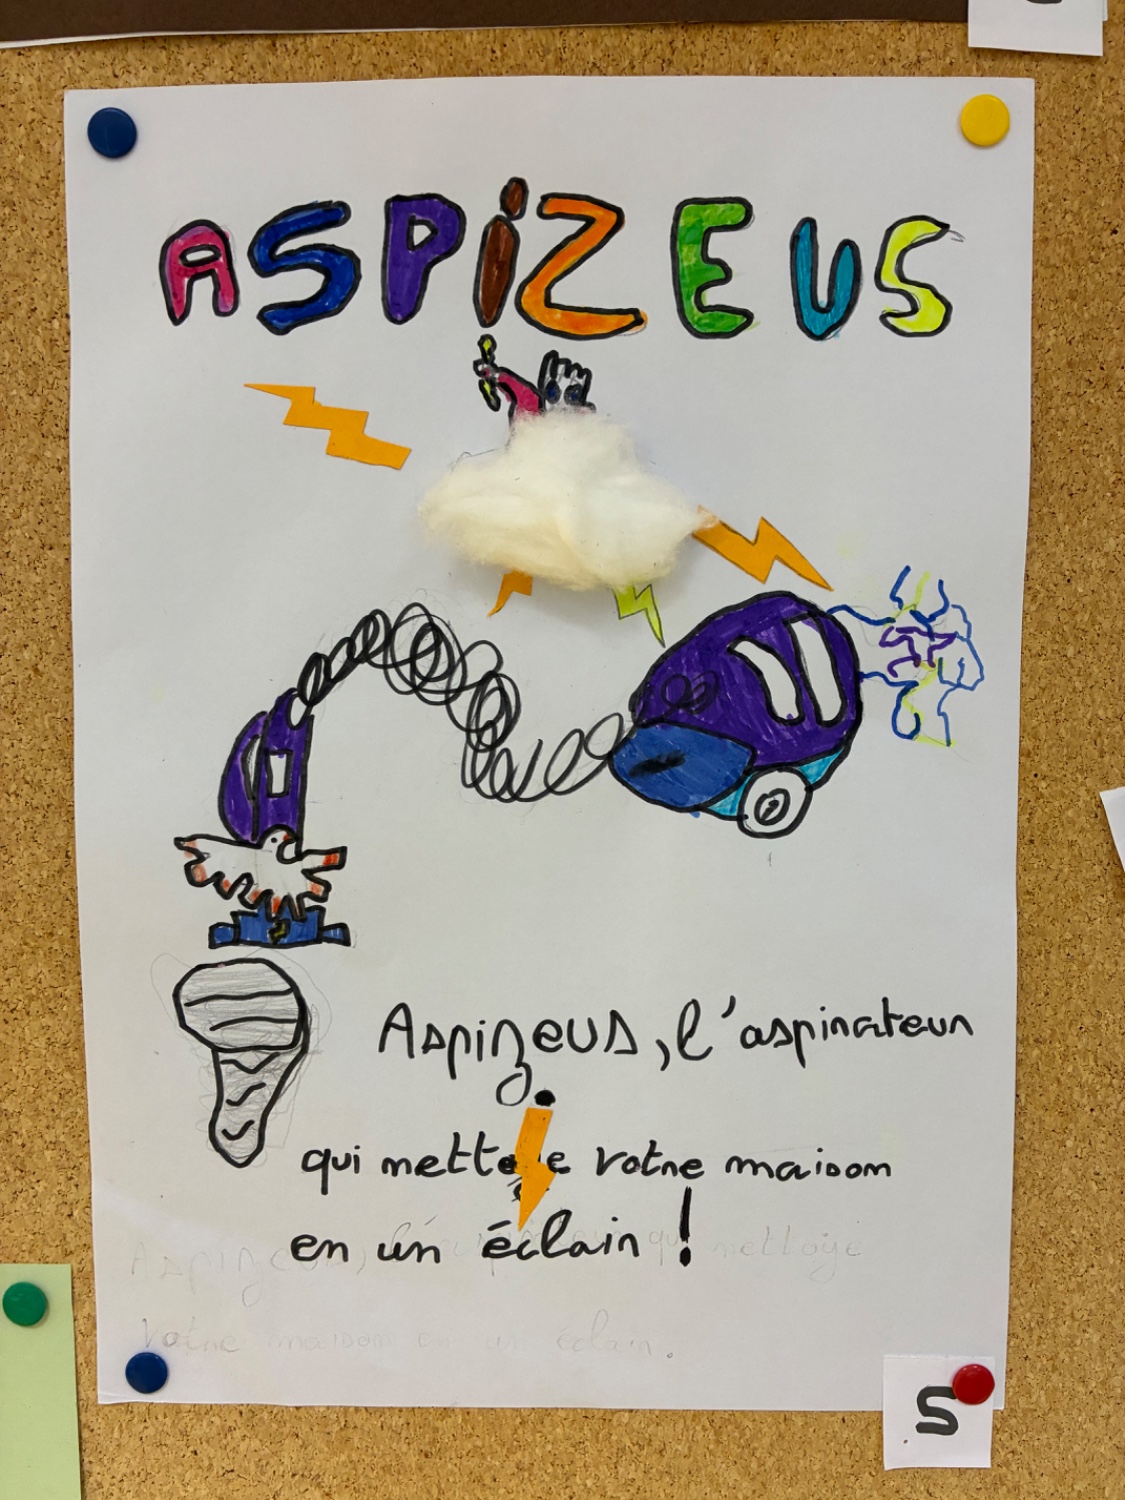 ASPiZEUS
Aspizeus, l'aspirateur
qui nettoie votre maison
en un éclair !
Aspizeus, l'aspirateur qui nettoye
votre maison en un éclair.
S